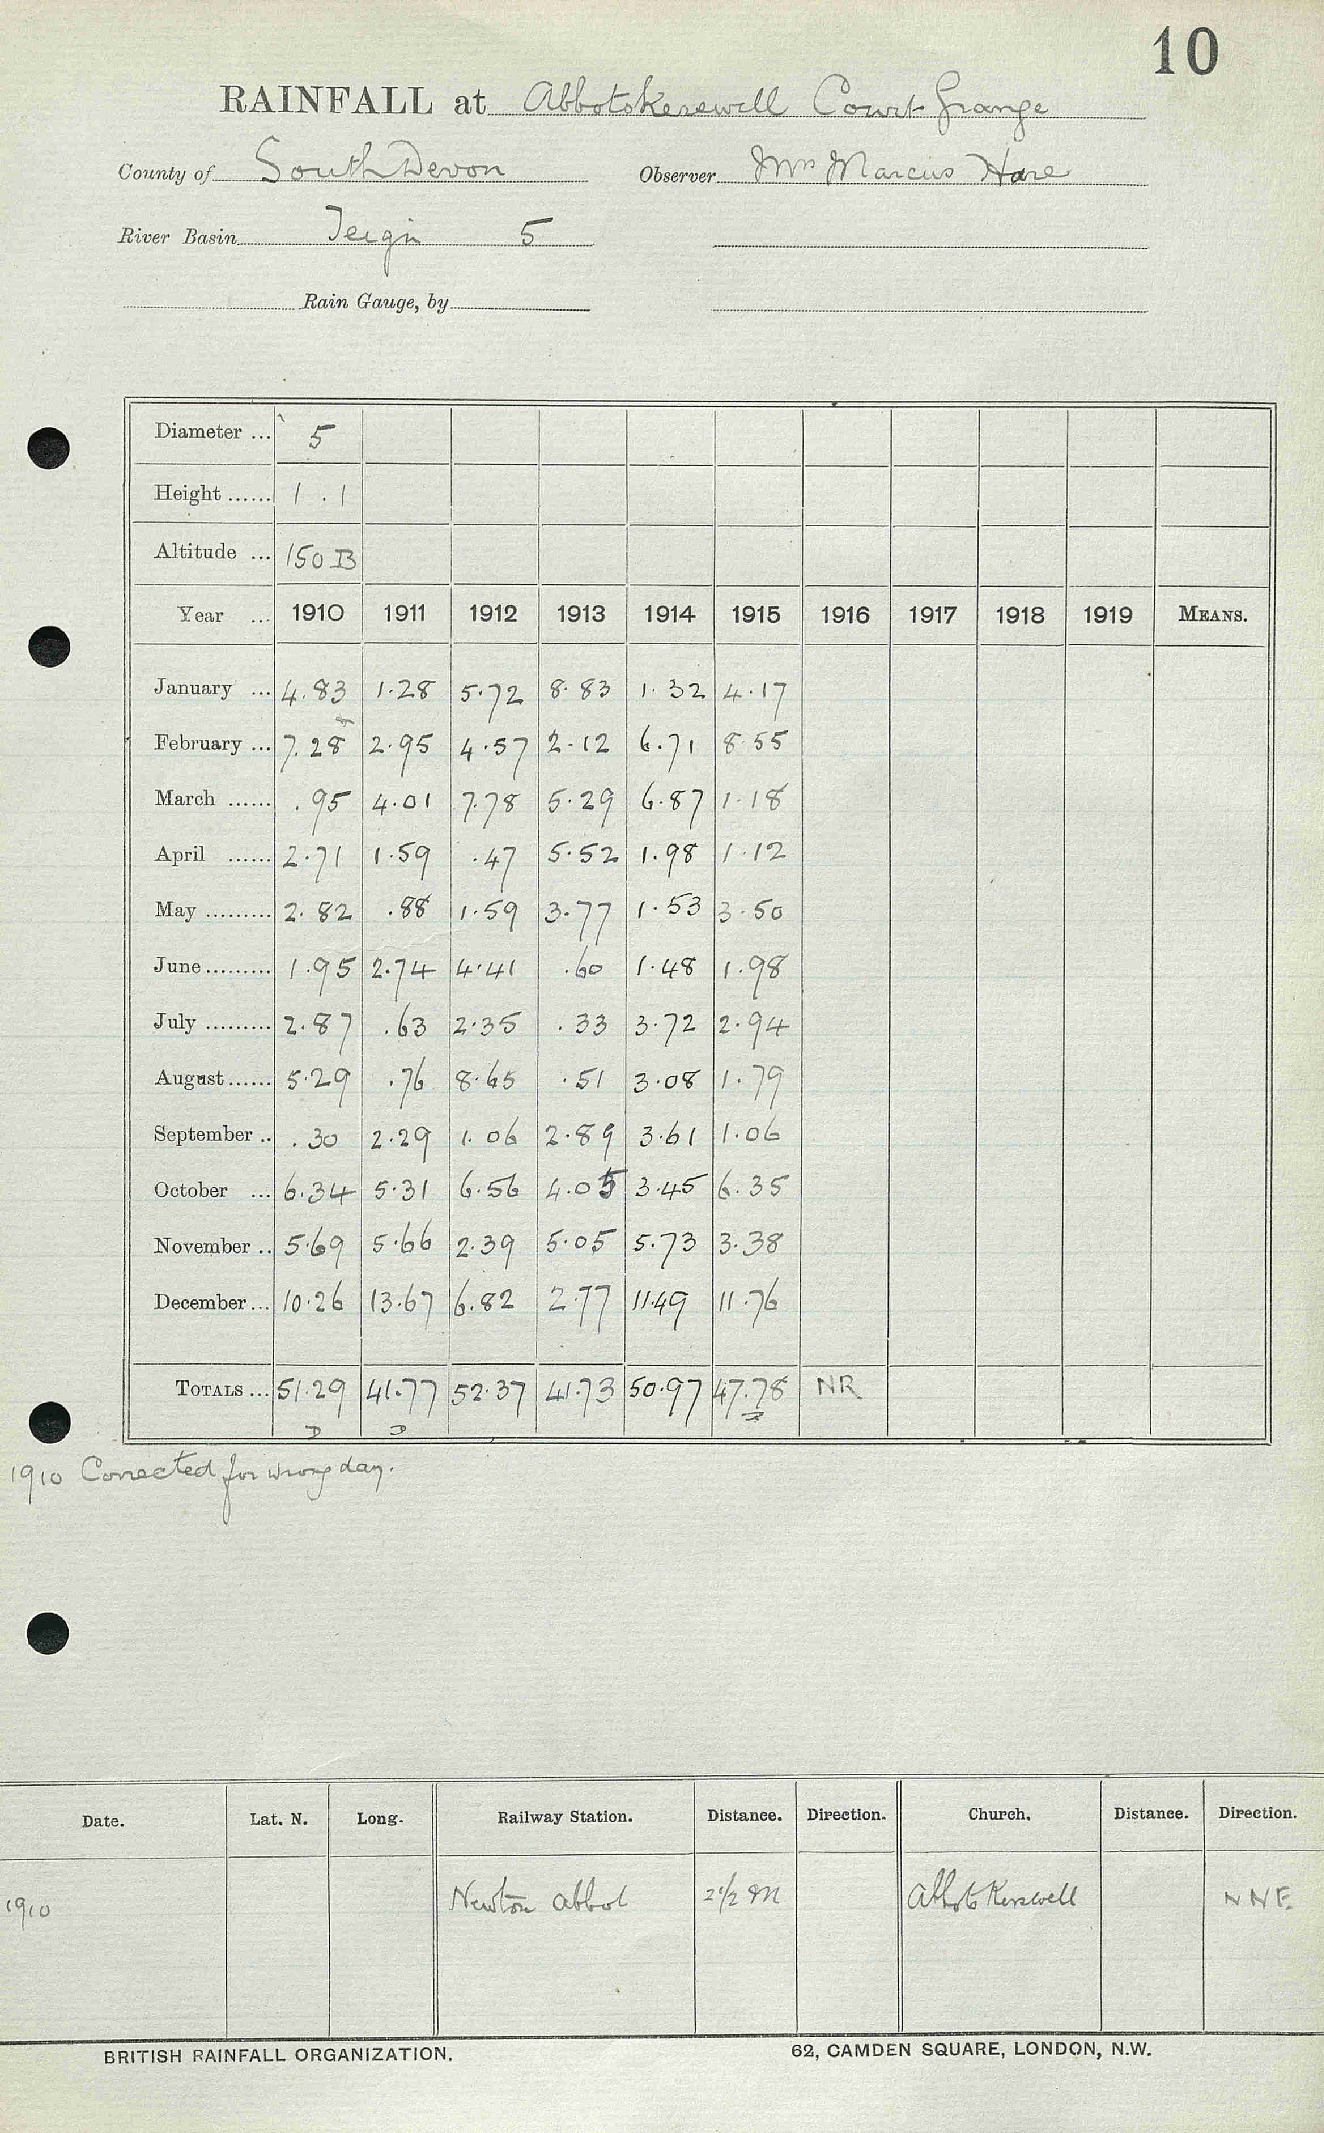 10
RAINFALL at Abbotskerswell Court Grange
County of South Devon Observer Mrs Marcus Hare
River Basin Teign 5
Rain Gauge, by
Diameter ... 5
Height ...... 1.1
Altitude ... 150 B
Year ... 1910 1911 1912 1913 1914 1915 1916 1917 1918 1919 MEANS.
January ... 4.83 1.28 5.72 8.83 1.32 4.17
February ... 7.28 2.95 4.57 2.12 6.71 8.55
March ...... .95 4.01 7.78 5.29 6.87 1.18
April ...... 2.71 1.59 .47 5.52 1.98 1.12
May ......... 2.82 .88 1.59 3.77 1.53 3.50
June ......... 1.95 2.74 4.41 .60 1.48 1.98
July ......... 2.87 .63 2.35 .33 3.72 2.94
August ...... 5.29 .76 8.65 .51 3.08 1.79
September .. .30 2.29 1.06 2.89 3.61 1.06
October ... 6.34 5.31 6.56 4.05 3.45 6.35
November .. 5.69 5.66 2.39 5.05 5.73 3.38
December ... 10.26 13.67 6.82 2.77 11.49 11.76
TOTALS ... 51.29 41.77 52.37 41.73 50.97 47.78 NR
1910 Corrected for wrong day.
Date. Lat. N. Long. Railway Station. Distance. Direction. Church. Distance. Direction.
1910 Newton Abbot 2 1/2 M Abbots Kerswell NNE
BRITISH RAINFALL ORGANIZATION. 62, CAMDEN SQUARE, LONDON, N.W.